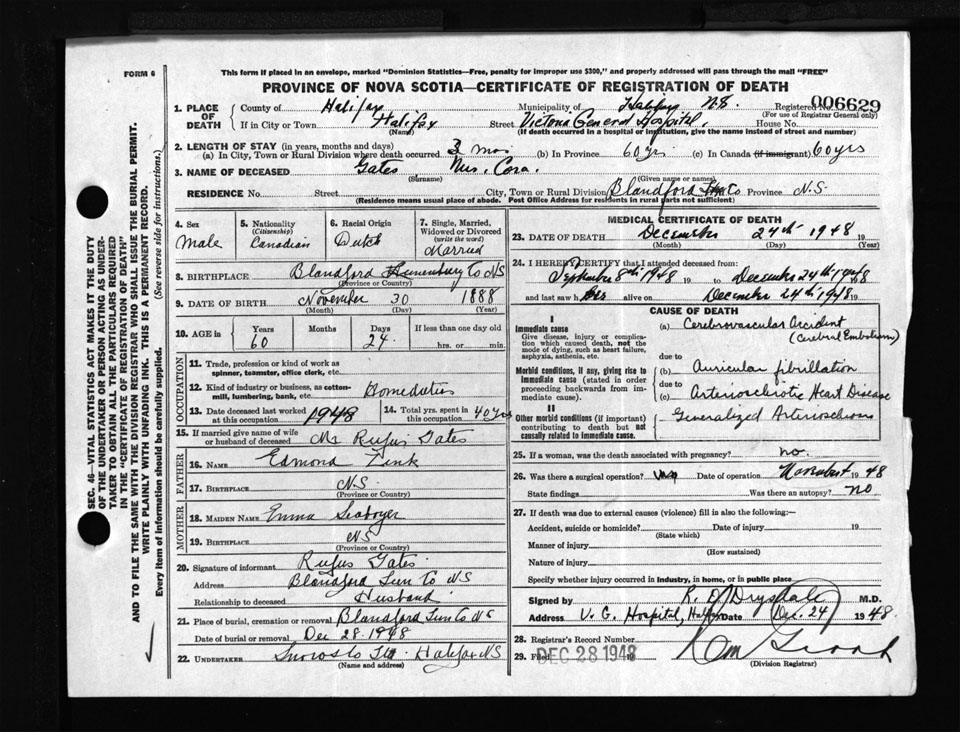 FORM 6
This form if placed in an envelope, marked "Dominion Statistics—Free, penalty for improper use $300," and properly addressed will pass through the mail "FREE"
PROVINCE OF NOVA SCOTIA—CERTIFICATE OF REGISTRATION OF DEATH
SEC. 46—VITAL STATISTICS ACT MAKES IT THE DUTY
OF THE UNDERTAKER OR PERSON ACTING AS UNDER-
TAKER TO OBTAIN ALL THE PARTICULARS REQUIRED
IN THE "CERTIFICATE OF REGISTRATION OF DEATH"
AND TO FILE THE SAME WITH THE DIVISION REGISTRAR WHO SHALL ISSUE THE BURIAL PERMIT.
WRITE PLAINLY WITH UNFADING INK. THIS IS A PERMANENT RECORD.
Every item of Information should be carefully supplied. (See reverse side for instructions.)
1. PLACE OF DEATH County of Halifax Municipality of Halifax N.S. Registered No. 006629
(For use of Registrar General only)
If in City or Town Halifax Street Victoria General Hospital. House No.
(Name) (If death occurred in a hospital or institution, give the name instead of street and number)
2. LENGTH OF STAY (in years, months and days)
(a) In City, Town or Rural Division where death occurred 3 mos (b) In Province 60 yrs (c) In Canada (if immigrant) 60 yrs
3. NAME OF DECEASED Gates Mrs. Cora.
(Surname) (Given name or names)
RESIDENCE No. Street City, Town or Rural Division Blandford Co Province N.S.
(Residence means usual place of abode. Post Office Address for residents in rural parts not sufficient)
4. Sex Male
5. Nationality (Citizenship) Canadian
6. Racial Origin Dutch
7. Single, Married, Widowed or Divorced (write the word) Married
8. BIRTHPLACE Blandford Lunenburg Co NS
(Province or Country)
9. DATE OF BIRTH November 30 1888
(Month) (Day) (Year)
10. AGE in Years Months Days If less than one day old
60 24. hrs. or min.
OCCUPATION
11. Trade, profession or kind of work as spinner, teamster, office clerk, etc.
12. Kind of industry or business, as cotton-mill, lumbering, bank, etc. Homeduties
13. Date deceased last worked at this occupation 1948 14. Total yrs. spent in this occupation 40 yrs
15. If married give name of wife or husband of deceased Mr Rufus Gates
FATHER
16. NAME Edmond Zink
17. BIRTHPLACE N.S.
(Province or Country)
MOTHER
18. MAIDEN NAME Emma Seaboyer
19. BIRTHPLACE NS
(Province or Country)
20. Signature of informant Rufus Gates
Address Blandford Lun Co NS
Relationship to deceased Husband
21. Place of burial, cremation or removal Blandford Lun Co NS
Date of burial or removal Dec 28. 1948
22. UNDERTAKER Snows Halifax NS
(Name and address)
MEDICAL CERTIFICATE OF DEATH
23. DATE OF DEATH December 24th 1948 19
(Month) (Day) (Year)
24. I HEREBY CERTIFY that I attended deceased from:
September 8th 1948 19 to December 24th 1948
and last saw her alive on December 24th 1948 19
CAUSE OF DEATH
I
Immediate cause
Give disease, injury or complication which caused death, not the mode of dying, such as heart failure, asphyxia, asthenia, etc.
(a) Cerebrovascular Accident
(Cerebral Embolism)
due to
Morbid conditions, if any, giving rise to immediate cause (stated in order proceeding backwards from immediate cause).
(b) Auricular fibrillation
due to
(c) Arteriosclerotic Heart Disease
II
Other morbid conditions (if important) contributing to death but not causally related to immediate cause.
Generalized Arteriosclerosis
25. If a woman, was the death associated with pregnancy? no.
26. Was there a surgical operation? Date of operation November 1948
State findings Was there an autopsy? no
27. If death was due to external causes (violence) fill in also the following:—
Accident, suicide or homicide? Date of injury 19
(State which)
Manner of injury
(How sustained)
Nature of injury
Specify whether injury occurred in industry, in home, or in public place
Signed by R. D. Drysdale M.D.
Address V. G. Hospital, Halifax Date Dec. 24 1948
28. Registrar's Record Number
29. Filed DEC 28 1948
(Division Registrar)